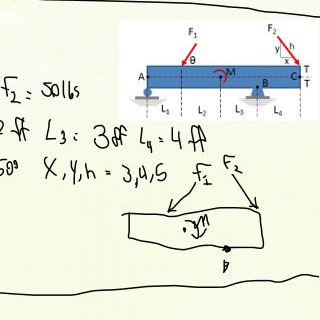 F₁ F₂
y h
θ x
A M B C T
T
L₁ L₂ L₃ L₄
F₂ = 50 lbs
2 ff L₃ = 3 ff L₄ = 4 ff
50° X, Y, h = 3, 4, 5
f₁ F₂
M
B